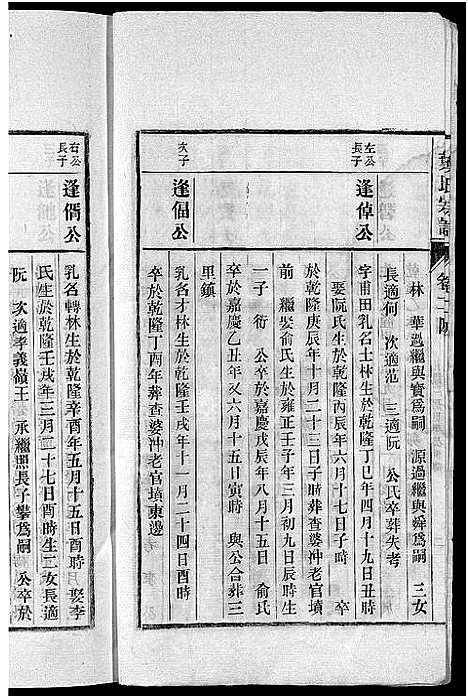 林　華過繼與賓爲嗣　源過繼與舜爲嗣　三女
長適何　次適范　三適阮　公氏卒葬失考
左公長子
逢倬公
字甫田乳名士林生於乾隆丁巳年四月十九日丑時
娶阮氏生於乾隆丙辰年六月十七日子時　卒
於乾隆庚辰年十月二十三日子時葬查婆沖老官墳
前　繼娶俞氏生於雍正壬子年三月初九日辰時生
一子　衍　公卒於嘉慶戊辰年八月十五日　俞氏
卒於嘉慶乙丑年又六月十五日寅時　與公合葬三
里鎮
次子
逢偪公
乳名才林生於乾隆壬戌年十一月二十四日酉時
卒於乾隆丁酉年葬查婆沖老官墳東邊
右公長子
逢偦公
乳名轉林生於乾隆辛酉年五月十五日酉時　娶李
氏生於乾隆壬戌年三月二十七日酉時生二女長適
阮　次適孝義嶺王　承繼照長子攀爲嗣　公卒於